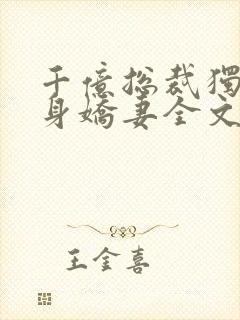 千億總裁獨
身嬌妻全文
王金喜